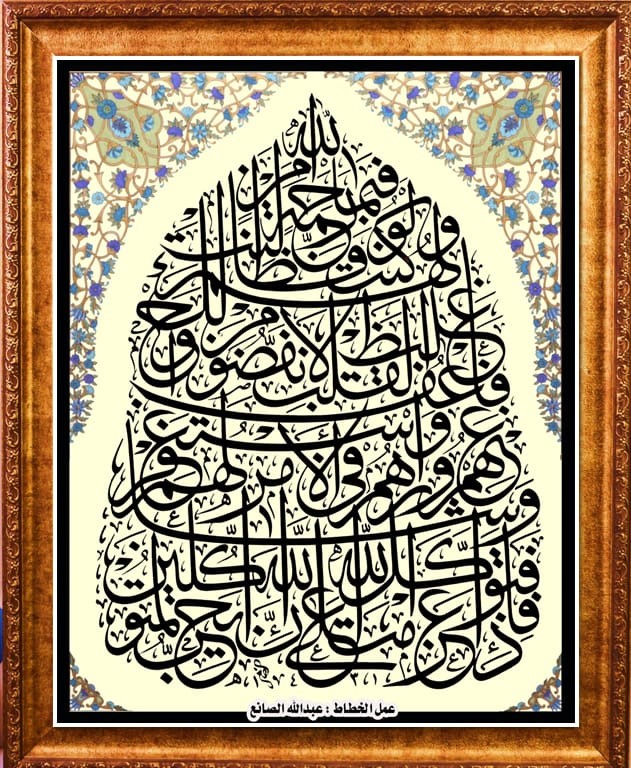 فبما رحمة من الله
لنت لهم ولو كنت فظا
غليظ القلب لانفضوا من حولك
فاعف عنهم واستغفر لهم
وشاورهم في الأمر
فإذا عزمت فتوكل على الله إن الله
يحب المتوكلين
عمل الخطاط : عبدالله الصائغ